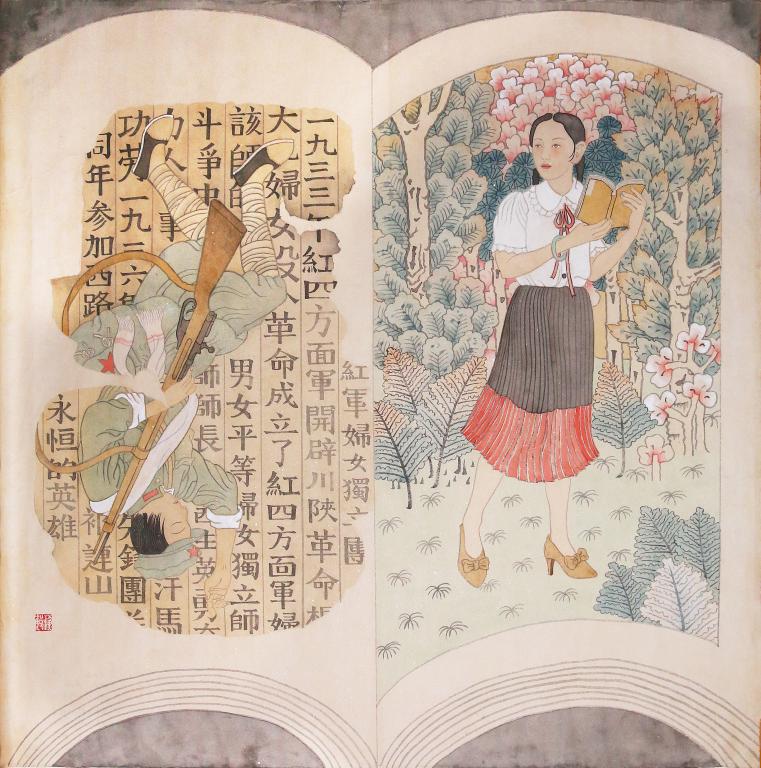 紅軍婦女獨立團
一九三三年紅四方面軍開辟川陝革命
大 婦女投入革命成立了紅四方面軍婦
該師 男女平等婦女獨立師
斗爭中 師師長
人 事 汗馬
功勞一九三六 團
同年参加西路 連山
永恒的英雄